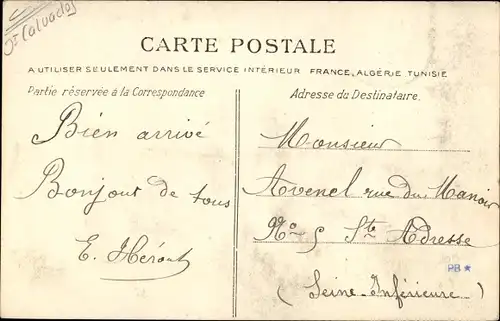 Jt Calvados
CARTE POSTALE
A UTILISER SEULEMENT DANS LE SERVICE INTÉRIEUR FRANCE, ALGÉRIE TUNISIE
Partie réservée à la Correspondance
Adresse du Destinataire.
Bien arrivé
Bonjour de tous
E. Hérout
Monsieur
Avenel rue du Manoir
No 5 Ste Adresse
(Seine-Inférieure)
PB★